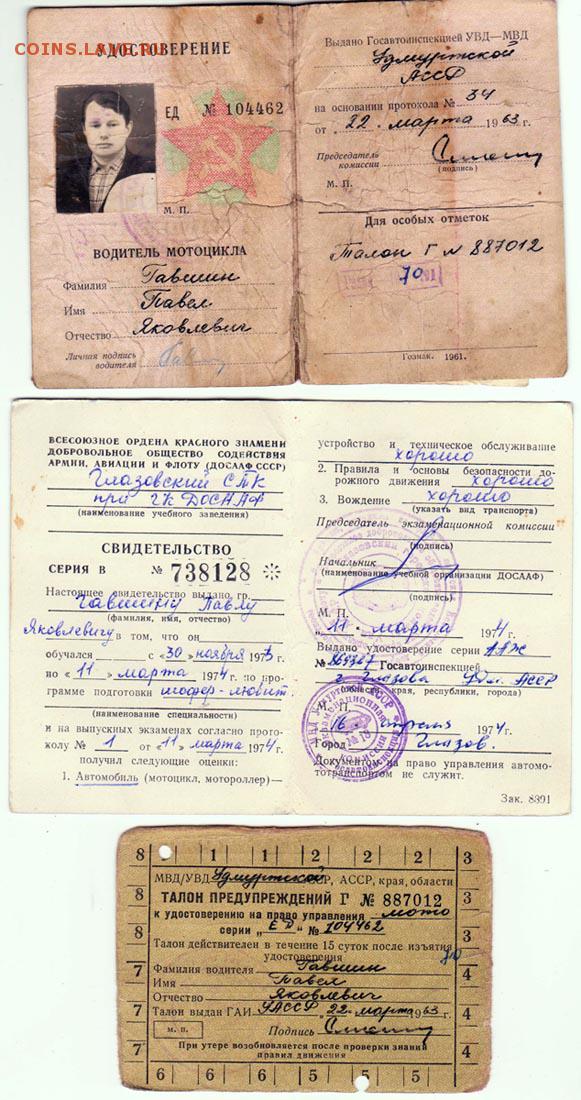 COINS.LAVE.RU
УДОСТОВЕРЕНИЕ
ЕД № 104462
М. П.
ВОДИТЕЛЬ МОТОЦИКЛА
Фамилия Гавшин
Имя Павел
Отчество Яковлевич
Личная подпись
водителя
Выдано Госавтоинспекцией УВД—МВД
Удмуртской
АССР
на основании протокола № 34
от „22„ марта 1963 г.
Председатель
комиссии
(подпись)
М. П.
Для особых отметок
Талон Г № 887012
70
Гознак. 1961.
ВСЕСОЮЗНОЕ ОРДЕНА КРАСНОГО ЗНАМЕНИ
ДОБРОВОЛЬНОЕ ОБЩЕСТВО СОДЕЙСТВИЯ
АРМИИ, АВИАЦИИ И ФЛОТУ (ДОСААФ СССР)
Глазовский СТК
при ГК ДОСААФ
(наименование учебного заведения)
СВИДЕТЕЛЬСТВО
СЕРИЯ В № 738128
Настоящее свидетельство выдано гр.
Гавшину Павлу
(фамилия, имя, отчество)
Яковлевичу в том, что он
обучался с «30» ноября 1973 г.
по «11» марта 1974 г. по про-
грамме подготовки шофер-любит.
(наименование специальности)
и на выпускных экзаменах согласно прото-
колу № 1 от «11» марта 1974 г.
получил следующие оценки:
1. Автомобиль (мотоцикл, мотороллер)—
устройство и техническое обслуживание
хорошо
2. Правила и основы безопасности до-
рожного движения хорошо
3. Вождение хорошо
(указать вид транспорта)
Председатель экзаменационной комиссии
(подпись)
Начальник
(наименование учебной организации ДОСААФ)
(подпись)
М. П.
„11„ марта 1974 г.
Выдано удостоверение серии ААЖ
№ Госавтоинспекцией
г. Глазова Удм. АССР
(области, края, республики, города)
М. П.
16 апреля 1974 г.
Город Глазов.
Документом на право управления автомо-
тотранспортом не служит.
Зак. 8391
8 1 1 2 2 2 3
МВД/УВД Удмуртской ССР, АССР, края, области
ТАЛОН ПРЕДУПРЕЖДЕНИЙ Г № 887012
к удостоверению на право управления мото
серии „ЕД" № 104462
8 3
Талон действителен в течение 15 суток после изъятия
удостоверения
70
Фамилия водителя Гавшин
Имя Павел
Отчество Яковлевич
7 4
Талон выдан ГАИ УАССР „22„ марта 1963 г.
м. п. Подпись
При утере возобновляется после проверки знаний
правил движения
7 4
6 6 6 5 5 5